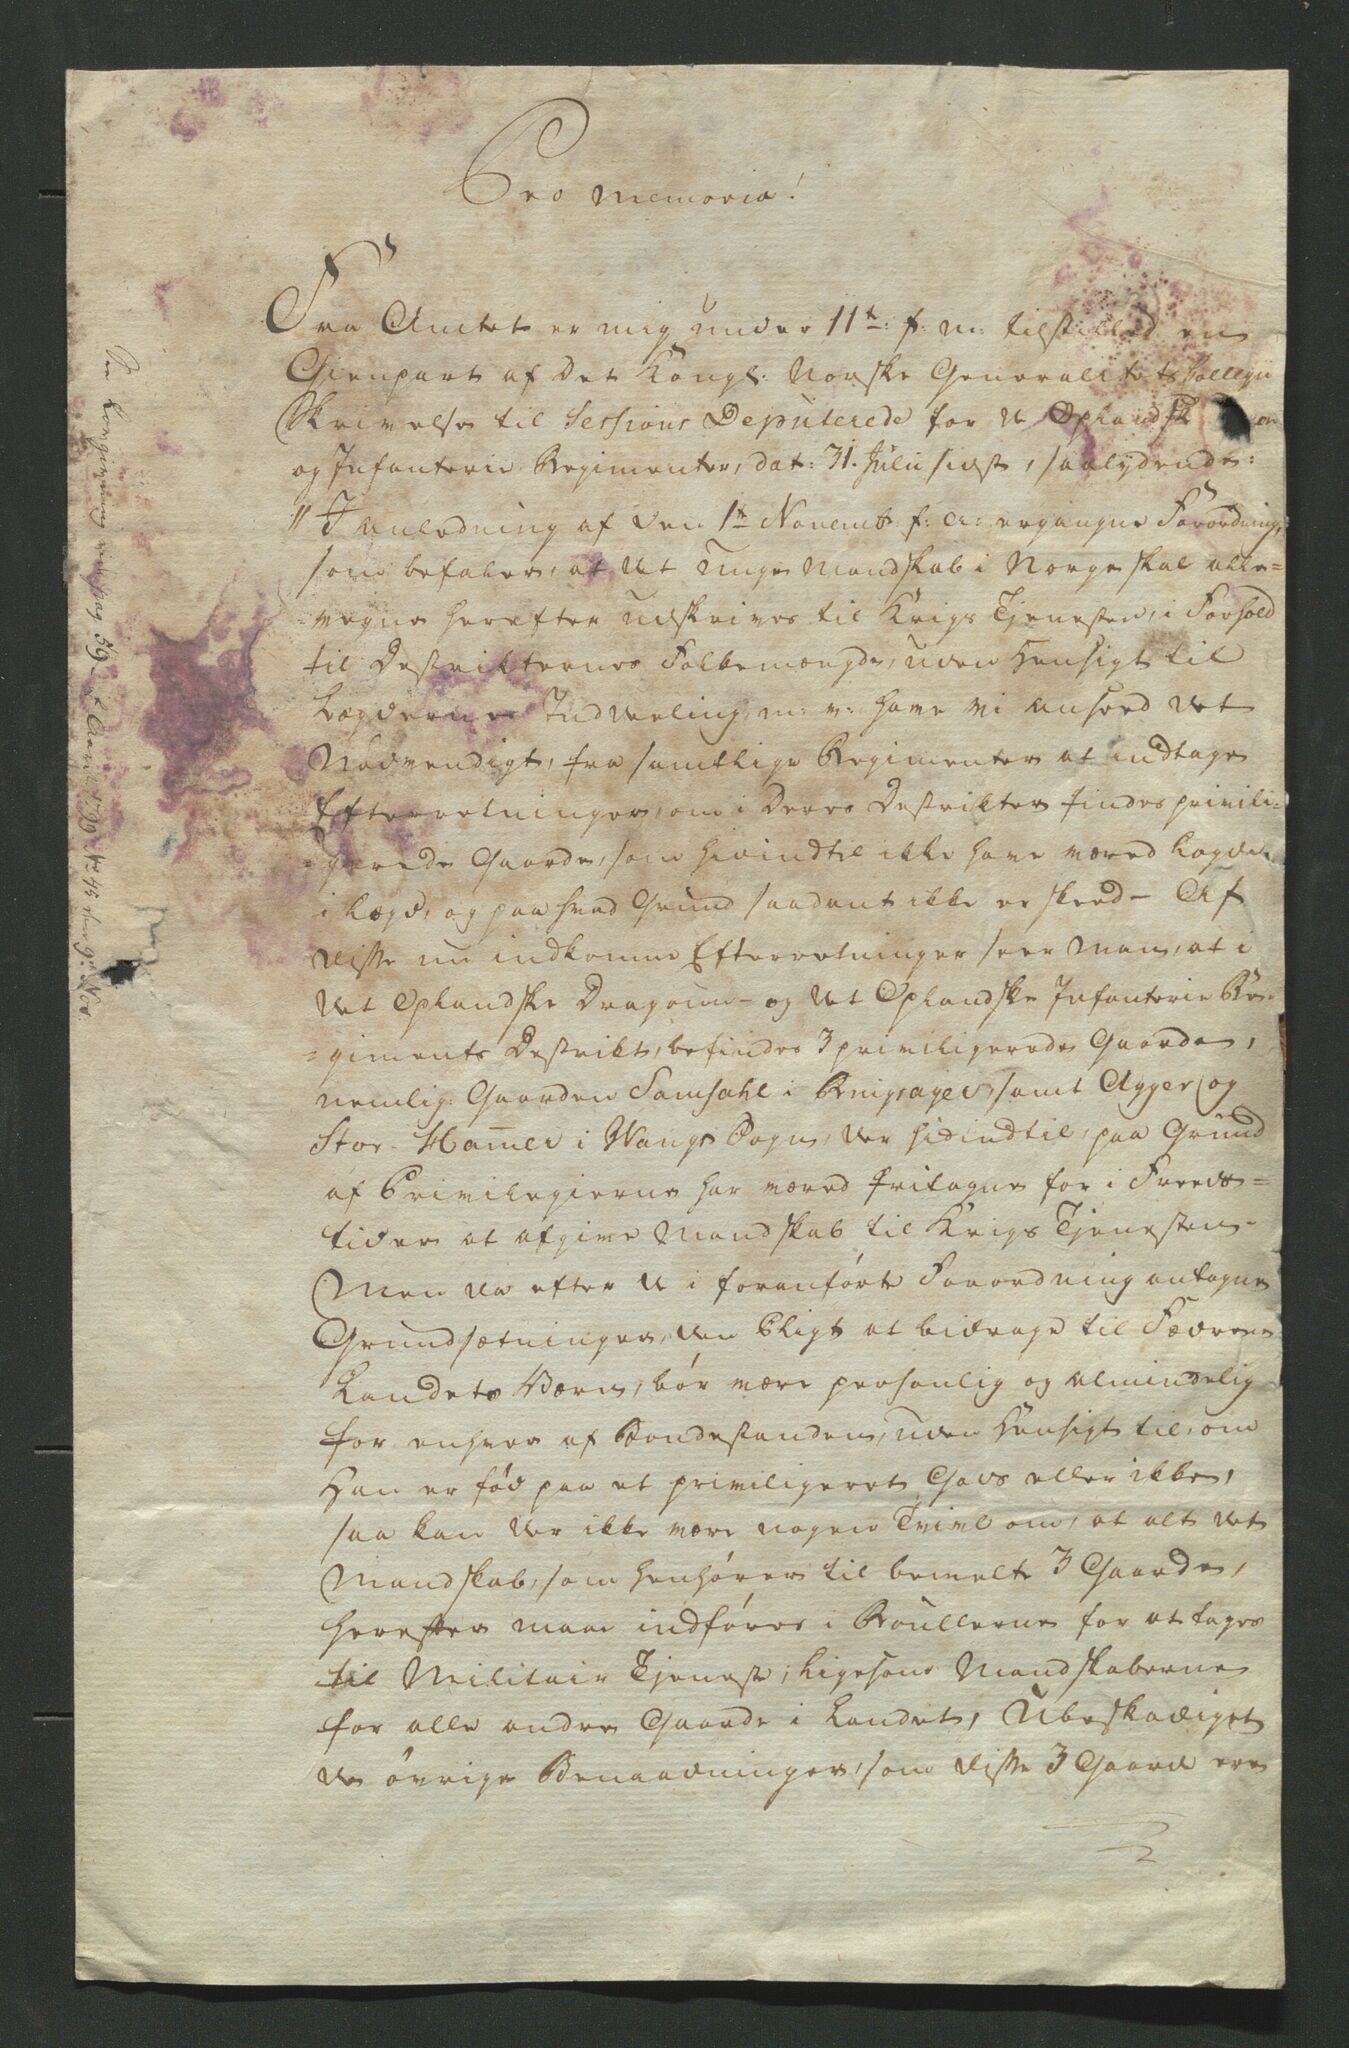 Pro Memoria!
Fra Amtet er mig under 11te f: m: tilstilled en
Gienpart af Det Kongl: Norske Generalitets Collegii
Skrivelse til Sessions Deputerede for de Oplandske
og Infanterie Regimenter, dat: 31. Julii sidst, saalydende:
"I anledning af den 1te Novemb: f: A: ergangne Forordning,
som befaler, at det unge Mandskab i Norge skal alle=
=vegne herefter udskrives til Krigs Tjenesten, i Forhold
til Destrikternes Folkemængde, uden Hensigt til
Lægdernes Inddeeling, m: v: have vi anseed det
Nødvendigt, fra samtlige Regimenter at indtage
Efterretninger, om i Deres Destrikter findes privili=
=gerede Gaarde, som hidindtil ikke have været lagde
i Lægd, og paa hvad Grund saadant ikke er skeed - Af
disse nu indkomne Efterretninger seer man, at i
det Oplandske Dragoun- og det Oplandske Infanterie Re=
=giments Destrikt, befindes 3 priviligerede Gaarde,
nemlig: Gaarden Samsahl i Ringsager, samt Agger og
Stor-Hammer i Wangs Sogn, der hidindtil, paa Grund
af Privilegierne har været fritagne for i Freds=
tider at afgive Mandskab til Krigs Tjenesten -
Men da efter de i foranførte Forordning antagne
Grundsætninger, den Pligt at bidrage til Fædrene
Landets Værn, bør være personlig og almindelig
for enhver af Bondestanden, uden Hensigt til, om
Han er fød paa et priviligeret Gods eller ikke,
saa kan der ikke være nogen Tvivl om, at alt det
Mandskab, som henhører til bemelte 3 Gaarde,
herefter maae indføres i Roullerne for at tages
til Militair Tjeneste, ligesom Mandskaberne
for alle andre Gaarde i Landet, Ubeskadiget
de øvrige Benaadninger, som disse 3 Gaarde ere
pag 59 April 1799 No 45